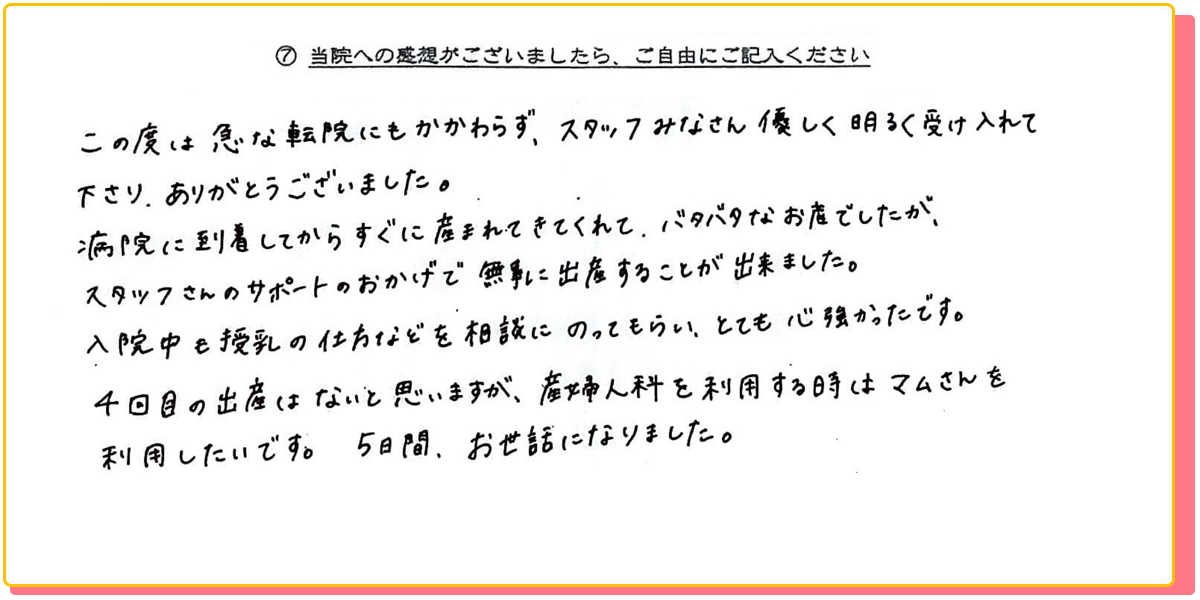 ⑦ 当院への感想がございましたら、ご自由にご記入ください
この度は急な転院にもかかわらず、スタッフみなさん優しく明るく受け入れて
下さり、ありがとうございました。
病院に到着してからすぐに産まれてきてくれて、バタバタなお産でしたが、
スタッフさんのサポートのおかげで無事に出産することが出来ました。
入院中も授乳の仕方などを相談にのってもらい、とても心強かったです。
4回目の出産はないと思いますが、産婦人科を利用する時はマムさんを
利用したいです。 5日間、お世話になりました。